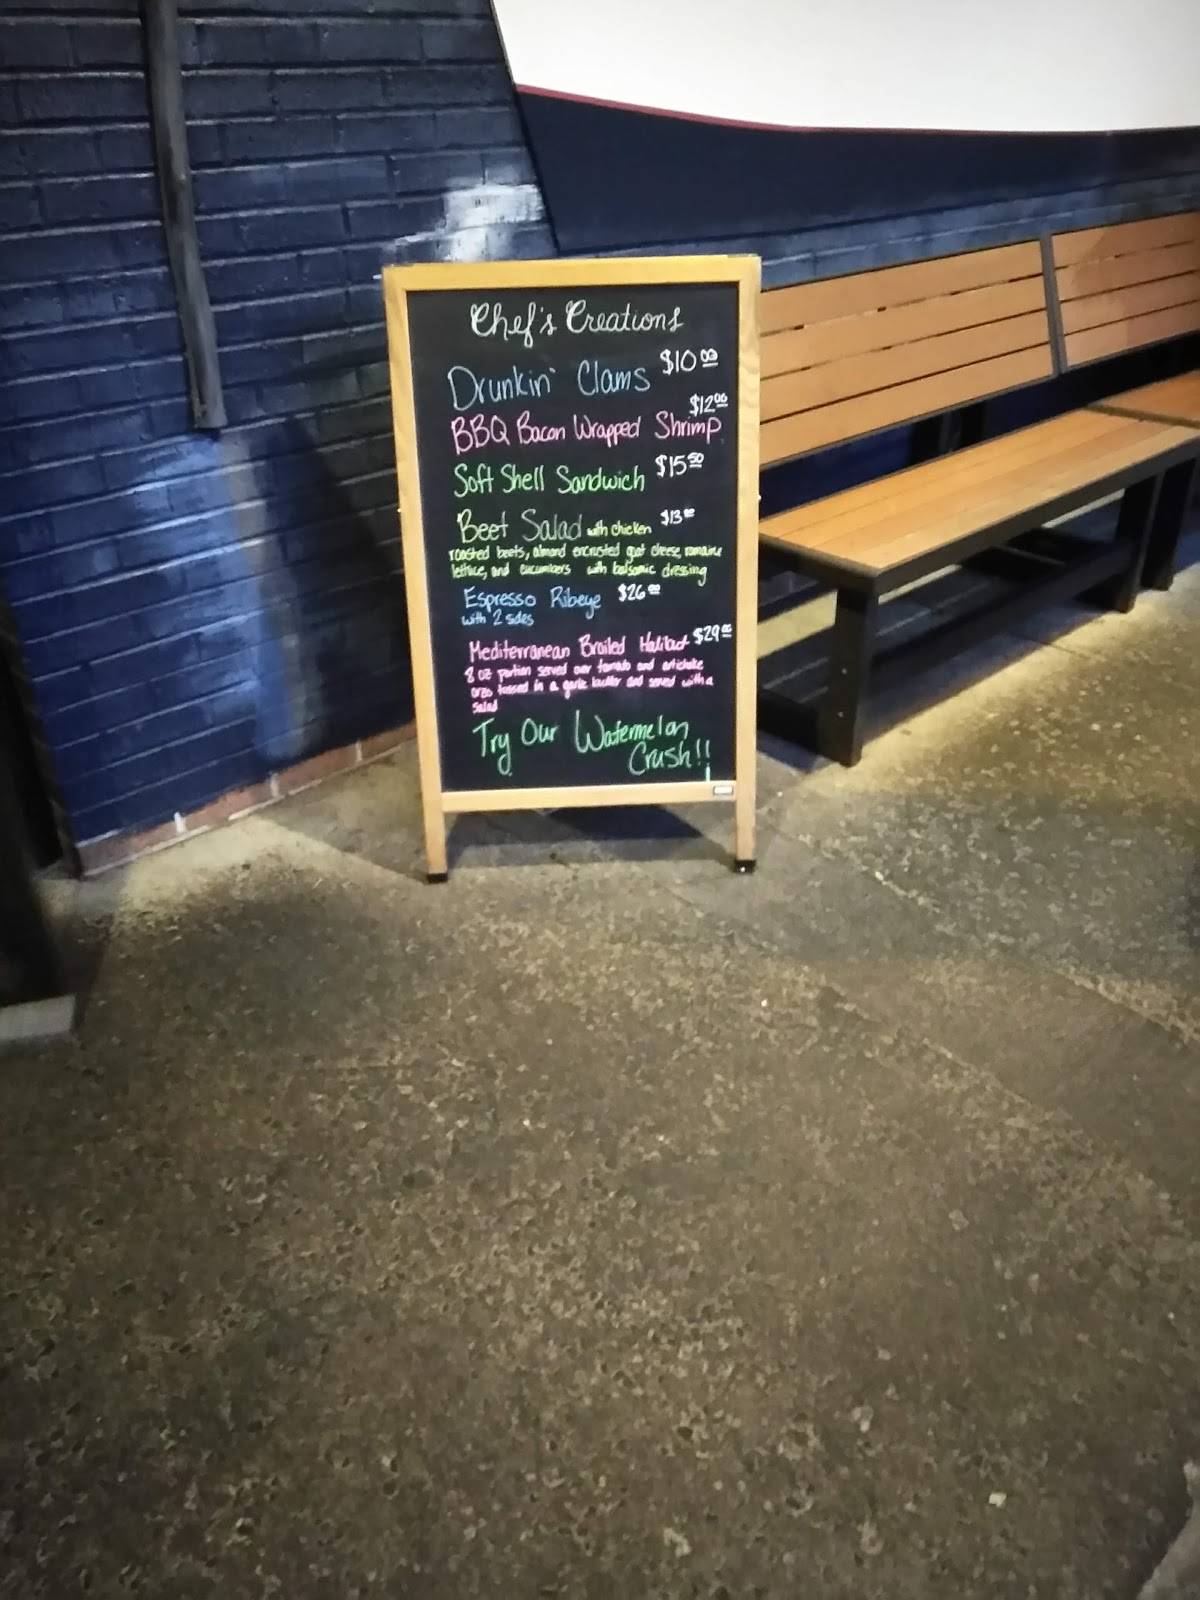 Chef's Creations
Drunkin' Clams $10.00
$12.00
BBQ Bacon Wrapped Shrimp
Soft Shell Sandwich $15.50
Beet Salad with chicken $13.00
roasted beets, almond encrusted goat cheese, romaine
lettuce, and cucumbers with balsamic dressing
Espresso Ribeye $26.00
with 2 sides
Mediterranean Broiled Halibut $29.00
8 oz portion served over tomato and artichoke
orzo tossed in a garlic butter and served with a
salad
Try Our Watermelon
Crush!!